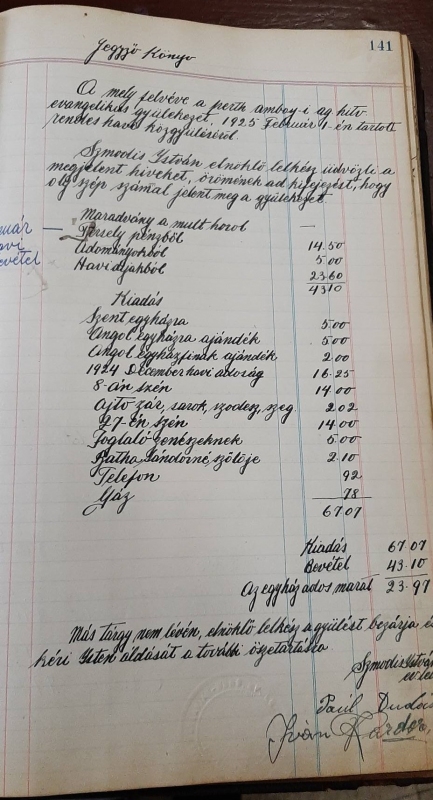 141
Jegyző Könyv
A mely felvéve a perth amboy-i ág. hitv.
evangelikus gyülekezet, 1925 Február 1-én tartott
rendes havi közgyüléséről.
Szmodis István elnöklő lelkész üdvözli a
megjelent hiveket, örömének ad kifejezést, hogy
oly szép számal jelent meg a gyülekezet
Maradvány a mult horol —
Persely pénzből 14.50
Adományokból 5.00
Havi dijakból 23.60
43.10
Kiadás
Szent egyházra 5.00
Angol egyházra ajándék 5.00
Angol egyházfinak ajándék 2.00
1924 December havi adoság 16.25
8-án szén 14.00
Ajtó zár, sarok, szeg. 2.02
27-én szén 14.00
Foglaló zenészeknek 5.00
Ratha Sándorné, szölöje 2.10
Telefon 92
Gáz 78
67.07
Kiadás 67.07
Bevétel 43.10
Az egyház ados marad 23.97
Más tárgy nem lévén, elnöklő lelkész a gyülést bezárja
kéri Isten áldását a további öszetartásra
Szmodis István
ev. lel
Paul
Iván